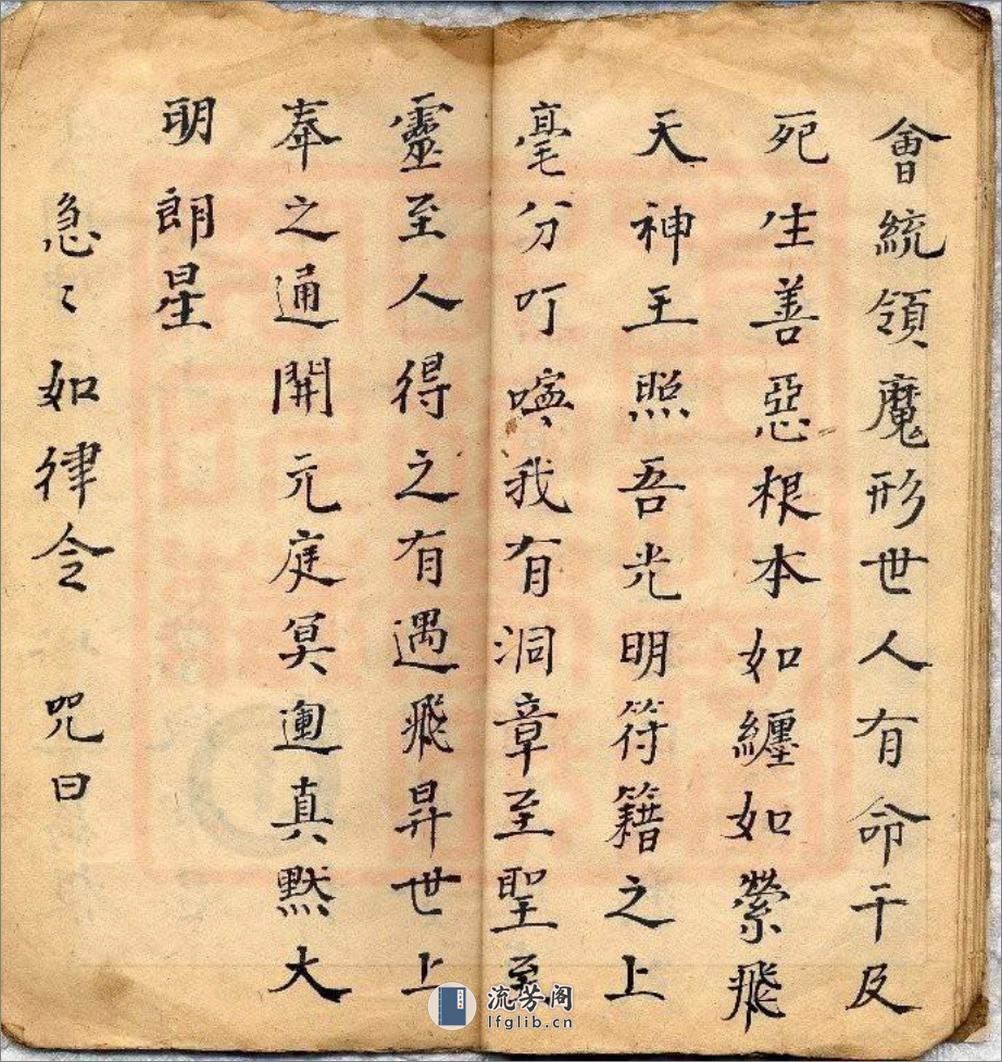 會統領魔形世人有命干及
死生善惡根本如纏如縈飛
天神王照吾光明符籍之上
毫分叮嚀我有洞章至聖至
靈至人得之有遇飛昇世上
奉之通開元庭冥運真默大
明朗星
急〻如律令　咒曰
流芳阁
lfglib.cn